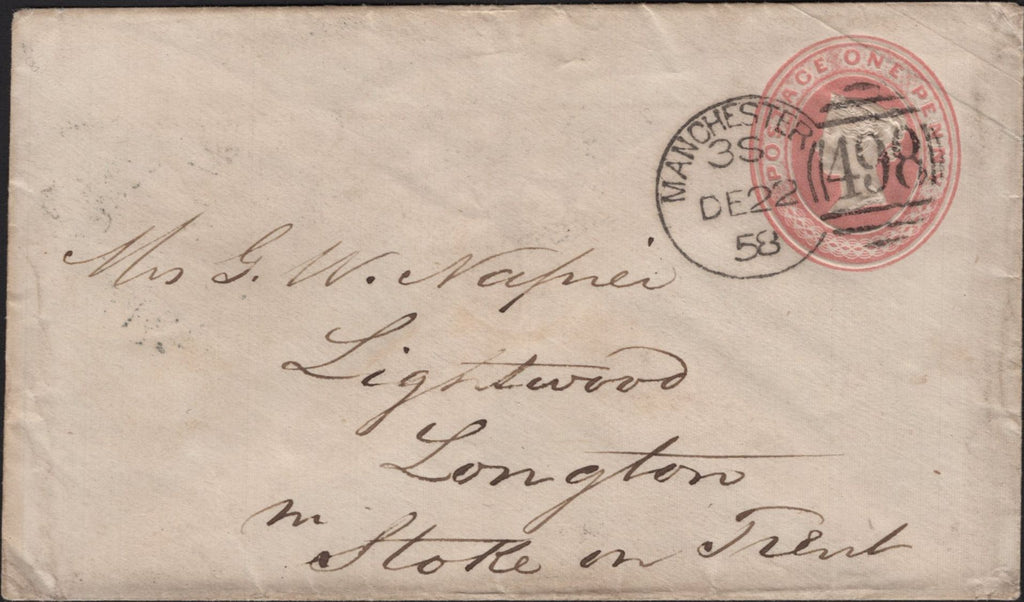 POSTAGE ONE PENNY
MANCHESTER
3S
DE 22
58
498
Mrs G. W. Napier
Lightwood
Longton
nr Stoke on Trent